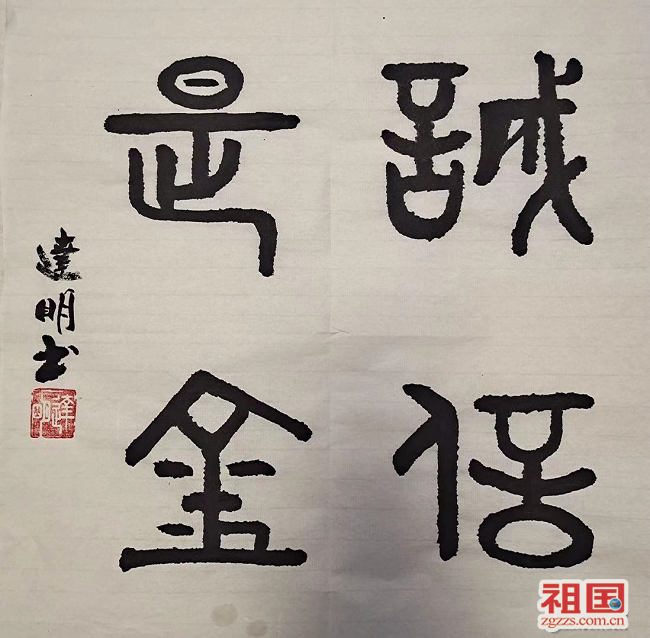 誠信
是金
達明书
達明
祖国
zgzzs.com.cn